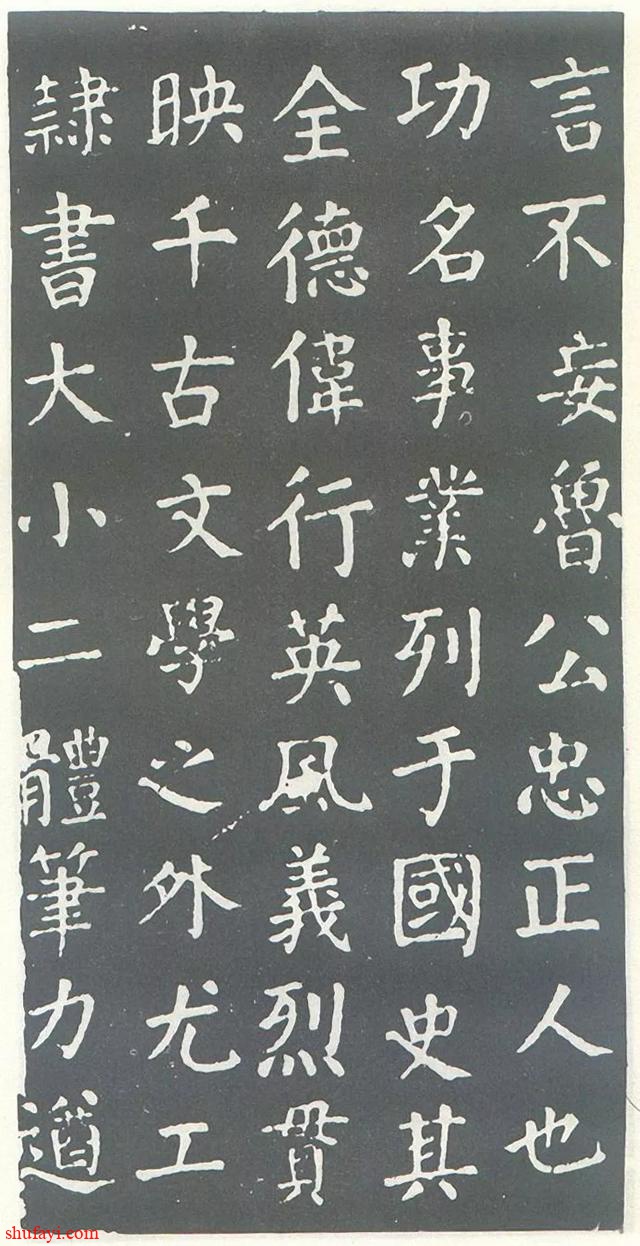 言不妄魯公忠正人也
功名事業列于國史其
全德偉行英風義烈貫
映千古文學之外尤工
隸書大小二體筆力遒
shufayi.com